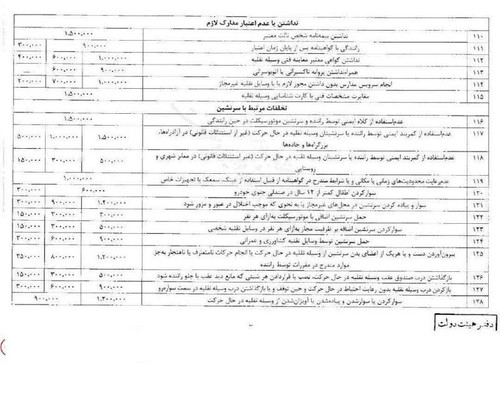 نداشتن یا عدم اعتبار مدارک لازم
۱۱۰ نداشتن بیمه‌نامه شخص ثالث معتبر ۱,۵۰۰,۰۰۰
۱۱۱ رانندگی با گواهینامه پس از پایان زمان اعتبار ۹۰۰,۰۰۰ ۳۰۰,۰۰۰
۱۱۲ نداشتن گواهی معتبر معاینه فنی وسیله نقلیه ۱,۰۰۰,۰۰۰ ۶۰۰,۰۰۰ ۴۰۰,۰۰۰
۱۱۳ همراه‌نداشتن پروانه تاکسیرانی یا اتوبوسرانی
۱۱۴ انجام سرویس مدارس بدون داشتن مجوز لازم یا با وسایل نقلیه غیرمجاز ۱,۰۰۰,۰۰۰ ۷۰۰,۰۰۰
۱۱۵ مغایرت مشخصات فنی با کارت شناسایی وسیله نقلیه ۱,۵۰۰,۰۰۰
تخلفات مرتبط با سرنشین
۱۱۶ عدم‌استفاده از کلاه ایمنی توسط راننده و سرنشین موتورسیکلت در حین رانندگی ۱,۵۰۰,۰۰۰
۱۱۷ عدم‌استفاده از کمربند ایمنی توسط راننده یا سرنشینان وسیله نقلیه در حال حرکت (غیر از استثنائات قانونی) در آزادراه‌ها، بزرگراه‌ها و جاده‌ها ۱,۵۰۰,۰۰۰ ۱,۰۰۰,۰۰۰ ۵۰۰,۰۰۰
۱۱۸ عدم‌استفاده از کمربند ایمنی توسط راننده یا سرنشینان وسایل نقلیه در حال حرکت (غیر از استثنائات قانونی) در معابر شهری و روستایی ۶۰۰,۰۰۰
۱۱۹ عدم‌رعایت محدودیت‌های زمانی یا مکانی و یا شرایط مندرج در گواهینامه از قبیل استفاده از عینک، سمعک یا تجهیزات خاص ۱,۰۰۰,۰۰۰
۱۲۰ سوارکردن اطفال کمتر از ۱۲ سال در صندلی جلوی خودرو ۶۰۰,۰۰۰ ۳۰۰,۰۰۰
۱۲۱ سوار و پیاده کردن سرنشین در محل‌های غیرمجاز یا به نحوی که موجب اختلال در عبور و مرور شود ۱,۲۰۰,۰۰۰ ۹۰۰,۰۰۰ ۳۰۰,۰۰۰
۱۲۲ حمل سرنشین اضافی با موتورسیکلت به‌ازای هر نفر ۵۰۰,۰۰۰ ۳۰۰,۰۰۰ ۱۵۰,۰۰۰
۱۲۳ سرنشین اضافه بر ظرفیت مجاز به‌ازای هر نفر در وسایل نقلیه شخصی
۱۲۴ حمل سرنشین توسط وسایل نقلیه کشاورزی و عمرانی
۱۲۵ بیرون‌آوردن دست و یا هریک از اعضای بدن سرنشین از وسیله نقلیه در حال حرکت یا انجام حرکات نامتعارف یا ناهنجار به‌جز موارد مندرج در مقررات توسط راننده ۱,۲۰۰,۰۰۰ ۸۰۰,۰۰۰
۱۲۶ بازگذاشتن درب صندوق عقب وسیله نقلیه در حال حرکت، نصب یا قراردادن هر شیئی که مانع دید عقب یا جلو راننده شود ۵۰۰,۰۰۰ ۳۰۰,۰۰۰ ۱۵۰,۰۰۰
۱۲۷ بازکردن درب وسیله نقلیه بدون رعایت احتیاط در حال حرکت و حین توقف و یا بازگذاشتن درب وسیله نقلیه در سمت سواره‌رو ۶۰۰,۰۰۰ ۳۰۰,۰۰۰ ۱۵۰,۰۰۰
۱۲۸ سوارکردن یا سوارشدن و پیاده‌شدن یا آویزان‌شدن از وسیله نقلیه در حال حرکت ۱,۲۰۰,۰۰۰ ۹۰۰,۰۰۰
دفتر هیئت دولت